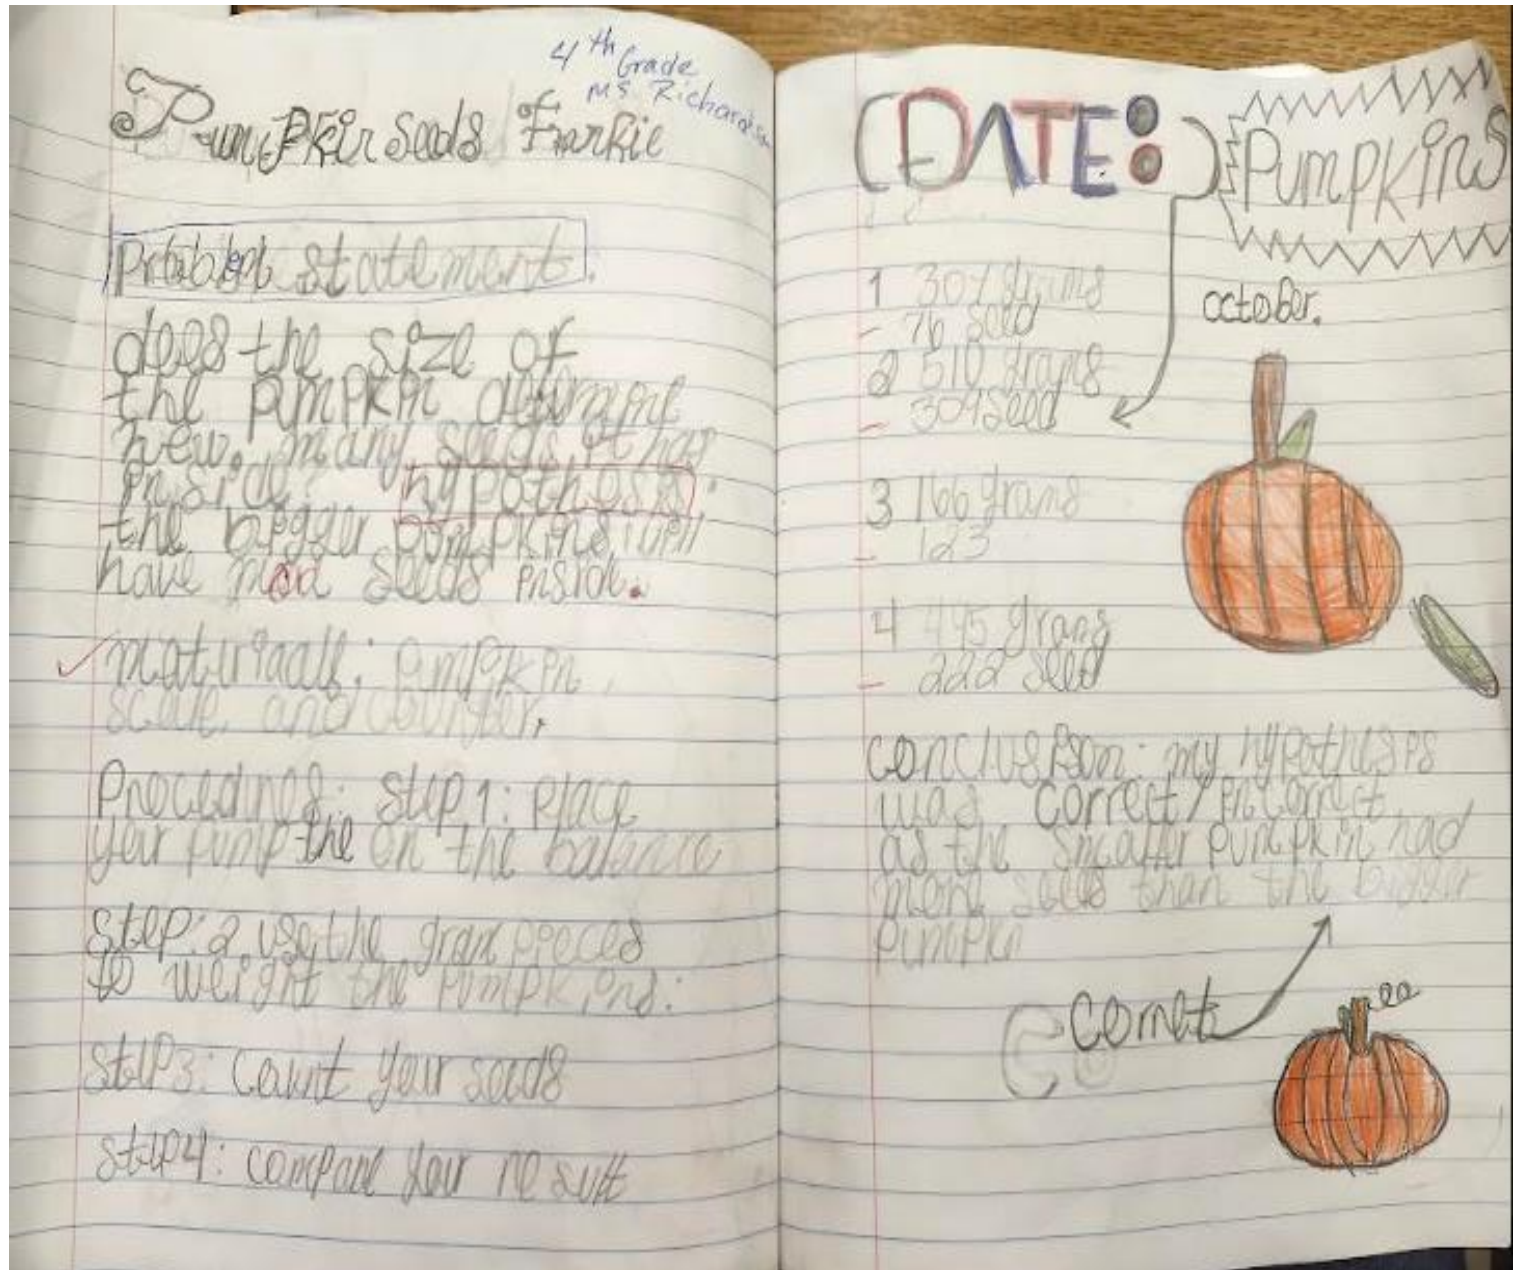 4th Grade
Ms. Richardson
Pumpkin seeds Frankie
Problem statement.
does the size of
the pumpkin determine
how many seeds it has
inside? hypothesis:
the bigger pumpkins will
have mor seeds inside.
materiaals: pumpkin,
scale, and counter.
Procedures: step 1: place
your pump the on the balance
step: 2 use the gram pieces
to weight the pumpkins.
step3: count your seeds
step4: compare your result
(DATE:) Pumpkins
october.
1 304 grams
- 76 seed
2 510 grams
- 304 seed
3 166 grams
- 123
4 445 grams
- 222 seed
conclusion: my hypothesis
was correct/incorrect
as the smaller pumpkin had
more seeds than the bigger
pumpkn